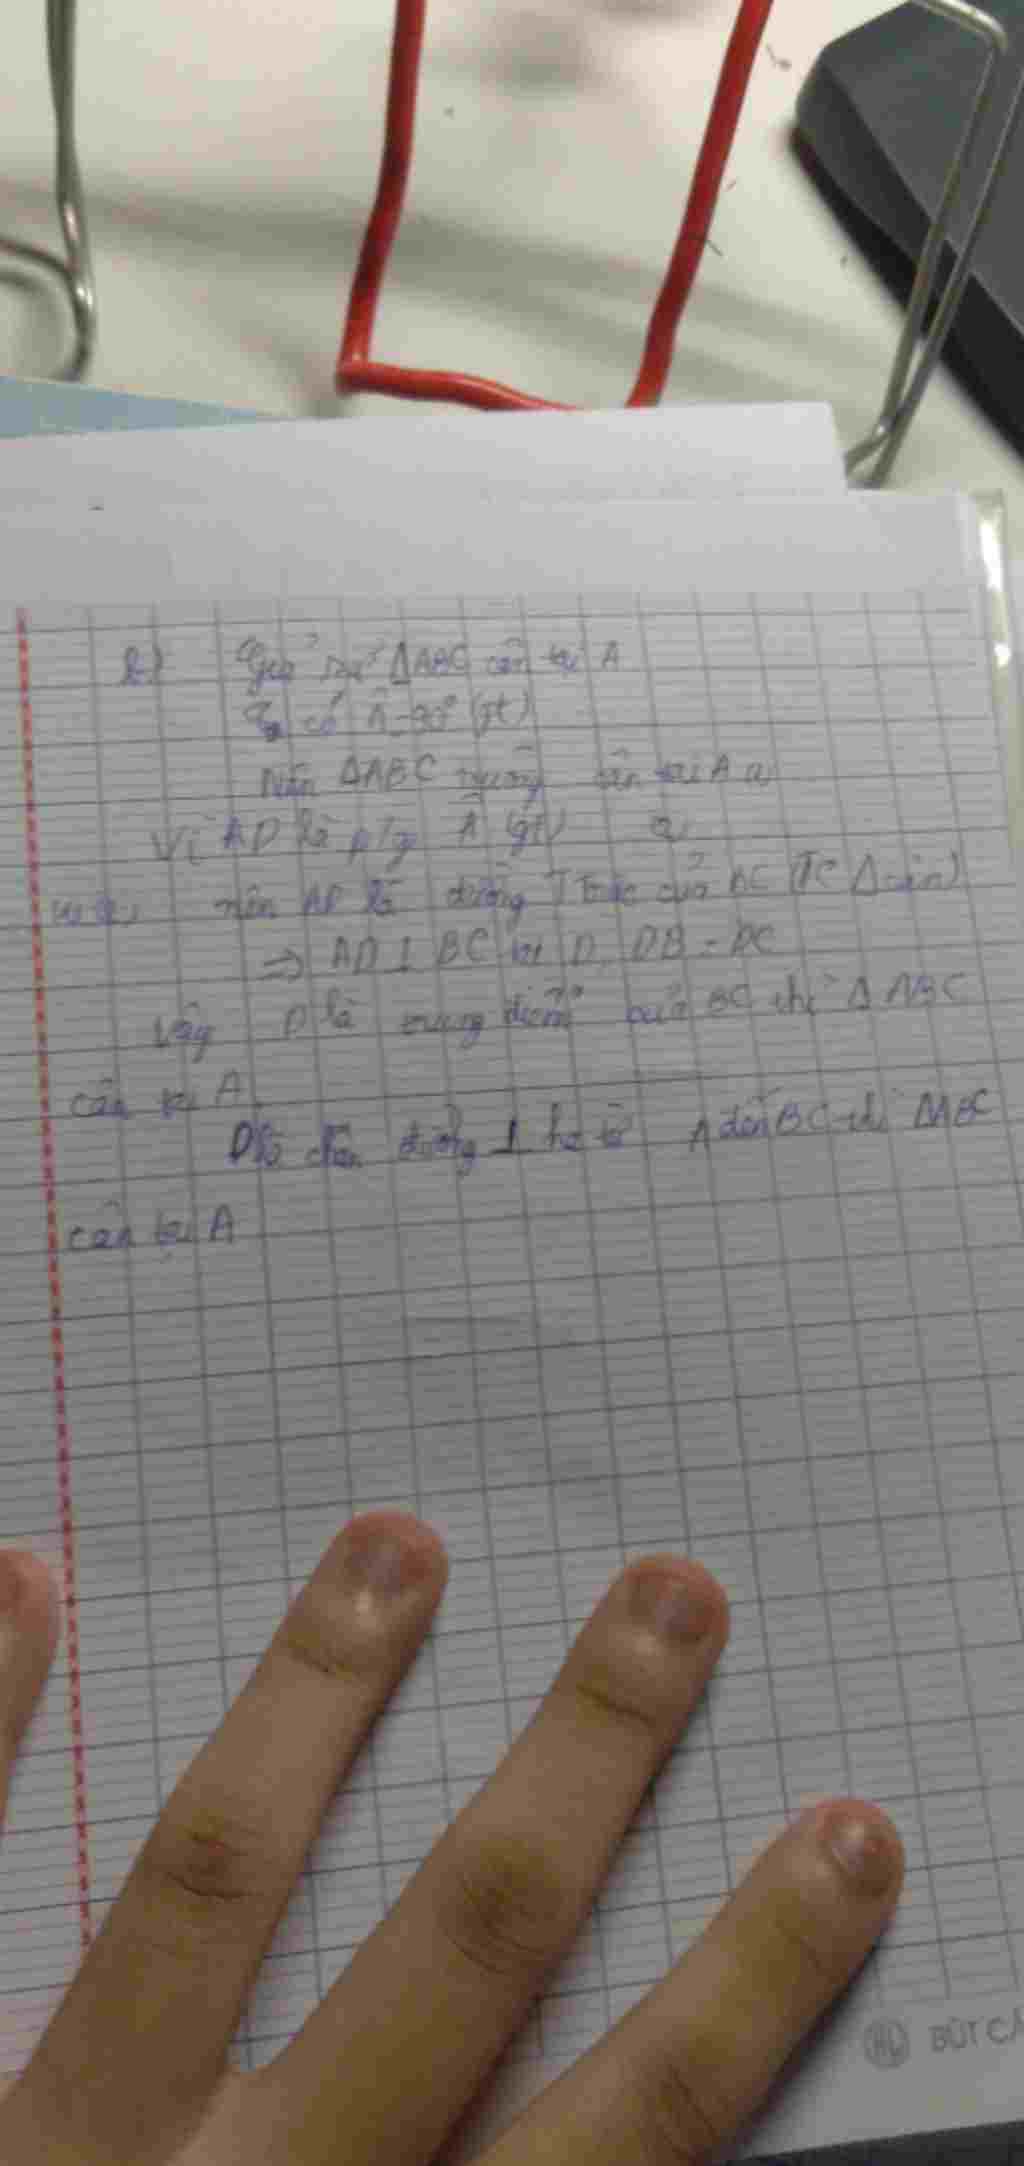 b) Giả sử ΔABC cân tại A
Ta có Â = 90° (gt)
Nên ΔABC vuông cân tại A (1)
Vì AD là p/g Â (gt) (2)
nên AD là đường T Trực của BC (TC Δ cân)
=> AD ⊥ BC tại D, DB = DC
Vậy D là trung điểm của BC thì ΔABC
cân tại A
D là chân đường ⊥ hạ từ A đến BC thì ΔABC
cân tại A
BÚT CH